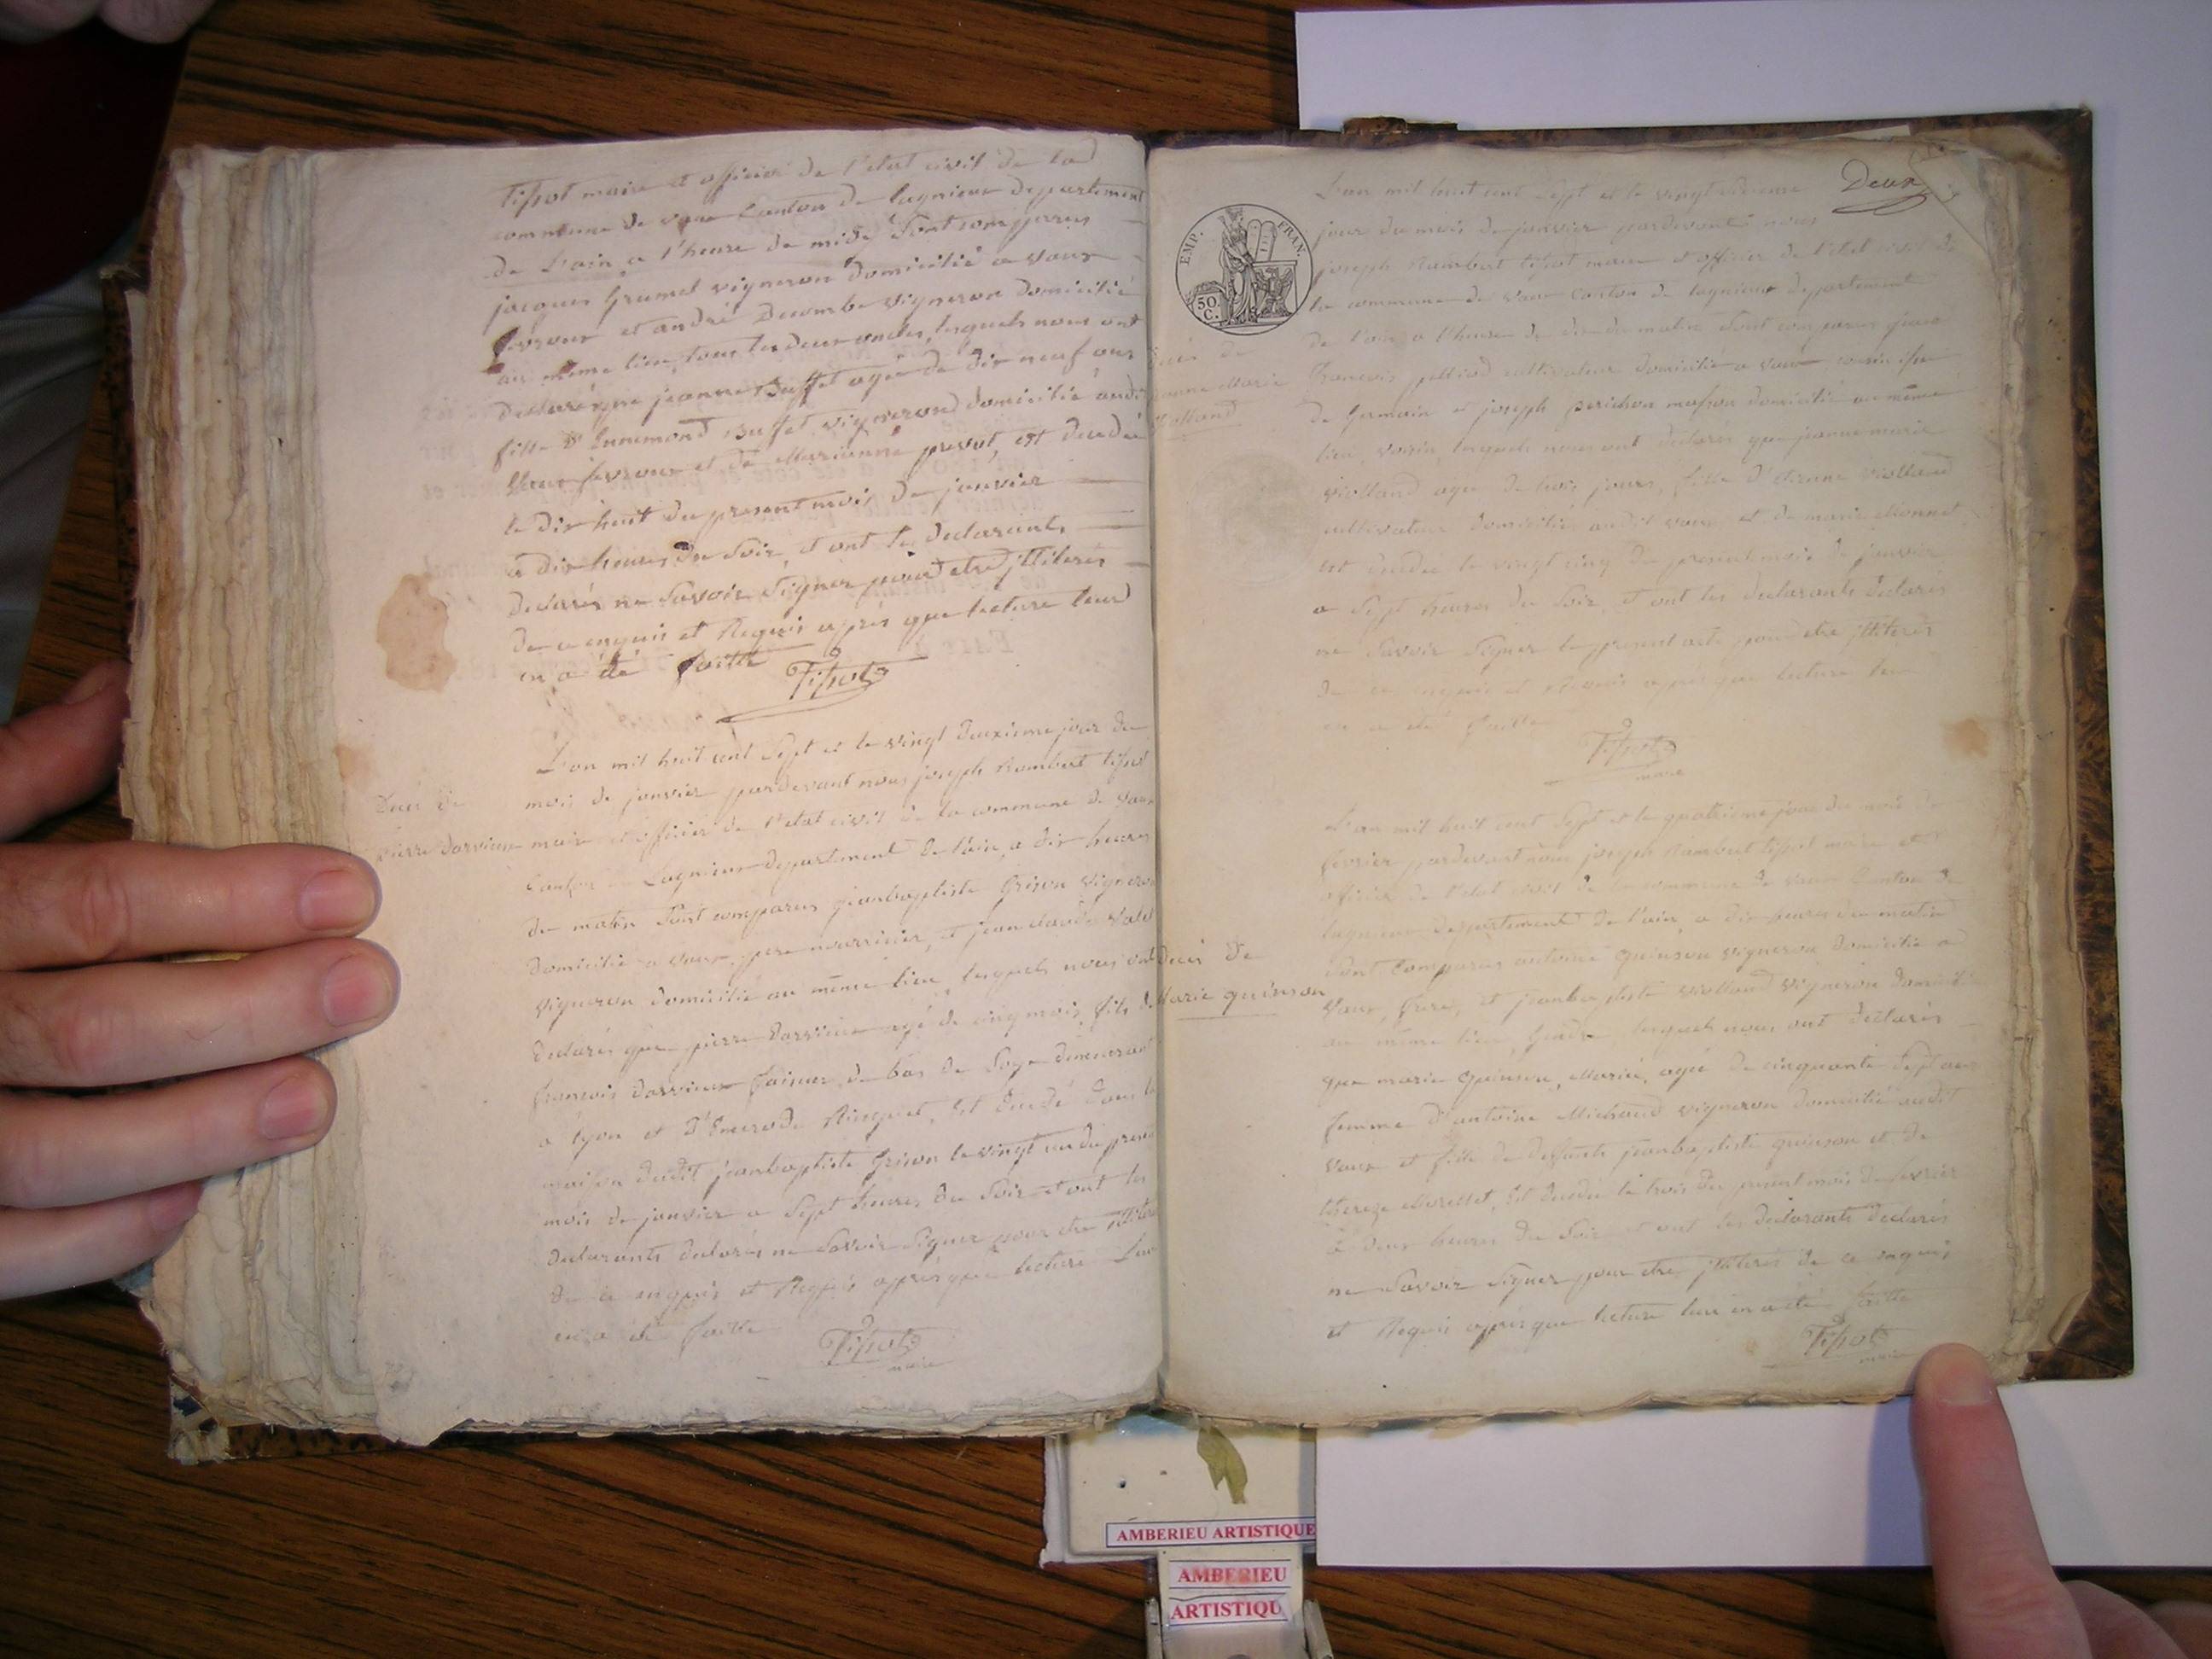 Tissot maire et officier de l'etat civil de la
commune de vaux Canton de lagnieux departement
de L'ain, a l'heure de midi Sont comparus
jacques Grumet vigneron domicilié a vaux
fevroux et andré Decombe vigneron domicilié
au même lieu, tous les deux oncles, lesquels nous ont
declaré que jeanne Buffet agée de dix neuf ans
fille d'Ennemond Buffet vigneron domicilié audit
Vaux fevroux et de Marianne prevot, est decedée
le dix huit du present mois de janvier
a dix heures du Soir, et ont les declarants
declarés ne Savoir Signer pour etre jlliterés
de ce enquis et Requis après que lecture leur
en a été faitte
Tissot
Decé de
pierre Darvieux
L'an mil huit cent Sept et le vingt deuxieme jour du
mois de janvier pardevant nous joseph Rambert tissot
maire et officier de l'etat civil de la commune de Vaux
Canton Lagnieux departement de l'ain, a dix heures
du matin Sont comparus jeanbaptiste Grison vigneron
domicilié a vaux, pere nourricier, et jean claude
vigneron domicilié au même lieu, lesquels nous ont
declarés que pierre Darvieux agé de cinq mois, fils de
françois Darvieux faiseur de bas de Soye demeurant
a lyon et Ringuet, est decedé dans la
maison dudit jeanbaptiste Grison le vingt un du present
mois de janvier a Sept heures du Soir et ont les
declarants declarés ne Savoir Signer pour etre jlliterés
de ce enquis et Requis après que lecture Leur
en a été faitte
Tissot
maire
Deux
EMP. FRAN.
50 C.
Decés de
jeanne Marie
Violland
L'an mil huit cent Sept et le vingt
jour du mois de janvier pardevant nous
joseph Rambert tissot maire et officier de l'état civil de
la commune de vaux canton de lagnieux departement
de l'ain, a l'heure de dix du matin Sont comparus jean
françois cultivateur domicilié a vaux,
de Germain et joseph perichon masson domicilié au même
lieu, voisin, lesquels nous ont declarés que jeanne marie
violland agée de trois jours, fille d'Etienne violland
cultivateur domicilié audit vaux et de marie Monnet
est decedée le vingt cinq du present mois de janvier
a Sept heures du Soir, et ont les declarants declarés
ne Savoir Signer le present acte pour etre jlliterés
de ce enquis et Requis après que lecture leur
en a été faitte
Tissot
maire
Decés de
Marie quinson
L'an mil huit cent Sept et le quatrieme jour du mois de
fevrier pardevant nous joseph Rambert tissot maire et
officier de l'etat civil de la commune de vaux Canton de
lagnieux departement de l'ain, a dix heures du matin
Sont Comparus antoine quinson vigneron domicilié a
Vaux, frere, et jeanbaptiste violland vigneron domicilié
au même lieu, gendre, lesquels nous ont declarés
que marie quinson, Mariée, agée de cinquante Sept ans
femme d'antoine Michaud vigneron domicilié audit
vaux et fille de deffunts jeanbaptiste quinson et de
thereze, est decedée le trois du present mois de fevrier
a deux heures du Soir et ont les declarants declarés
ne Savoir Signer pour etre jlliterés de ce enquis
et Requis après que lecture leur en a été faitte
Tissot
maire
AMBERIEU ARTISTIQUE
AMBERIEU
ARTISTIQU